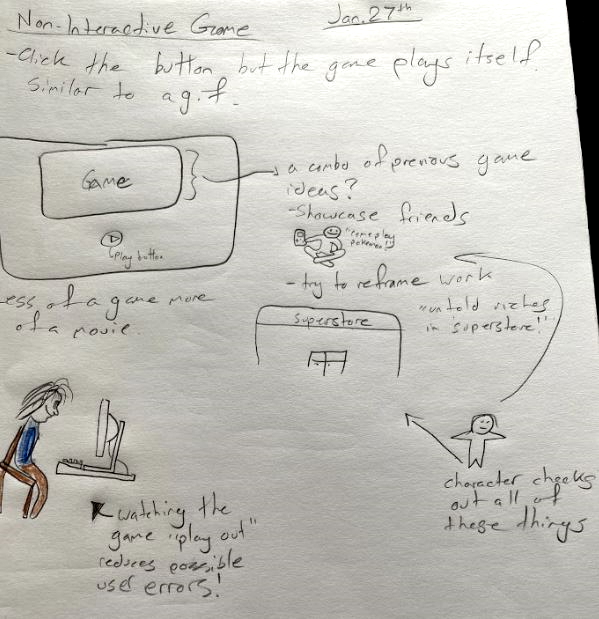 Non-Interactive Game
Jan. 27th
-Click the button but the game plays itself.
Similar to a g.f.
Game
play button
a combo of previous game
ideas?
-Showcase friends
"come play
pokemon!"
-try to reframe work
"untold riches
in 'superstore!'"
Superstore
ess of a game more
of a movie.
character checks
out all of
these things
watching the
game "play out"
reduces possible
user errors!